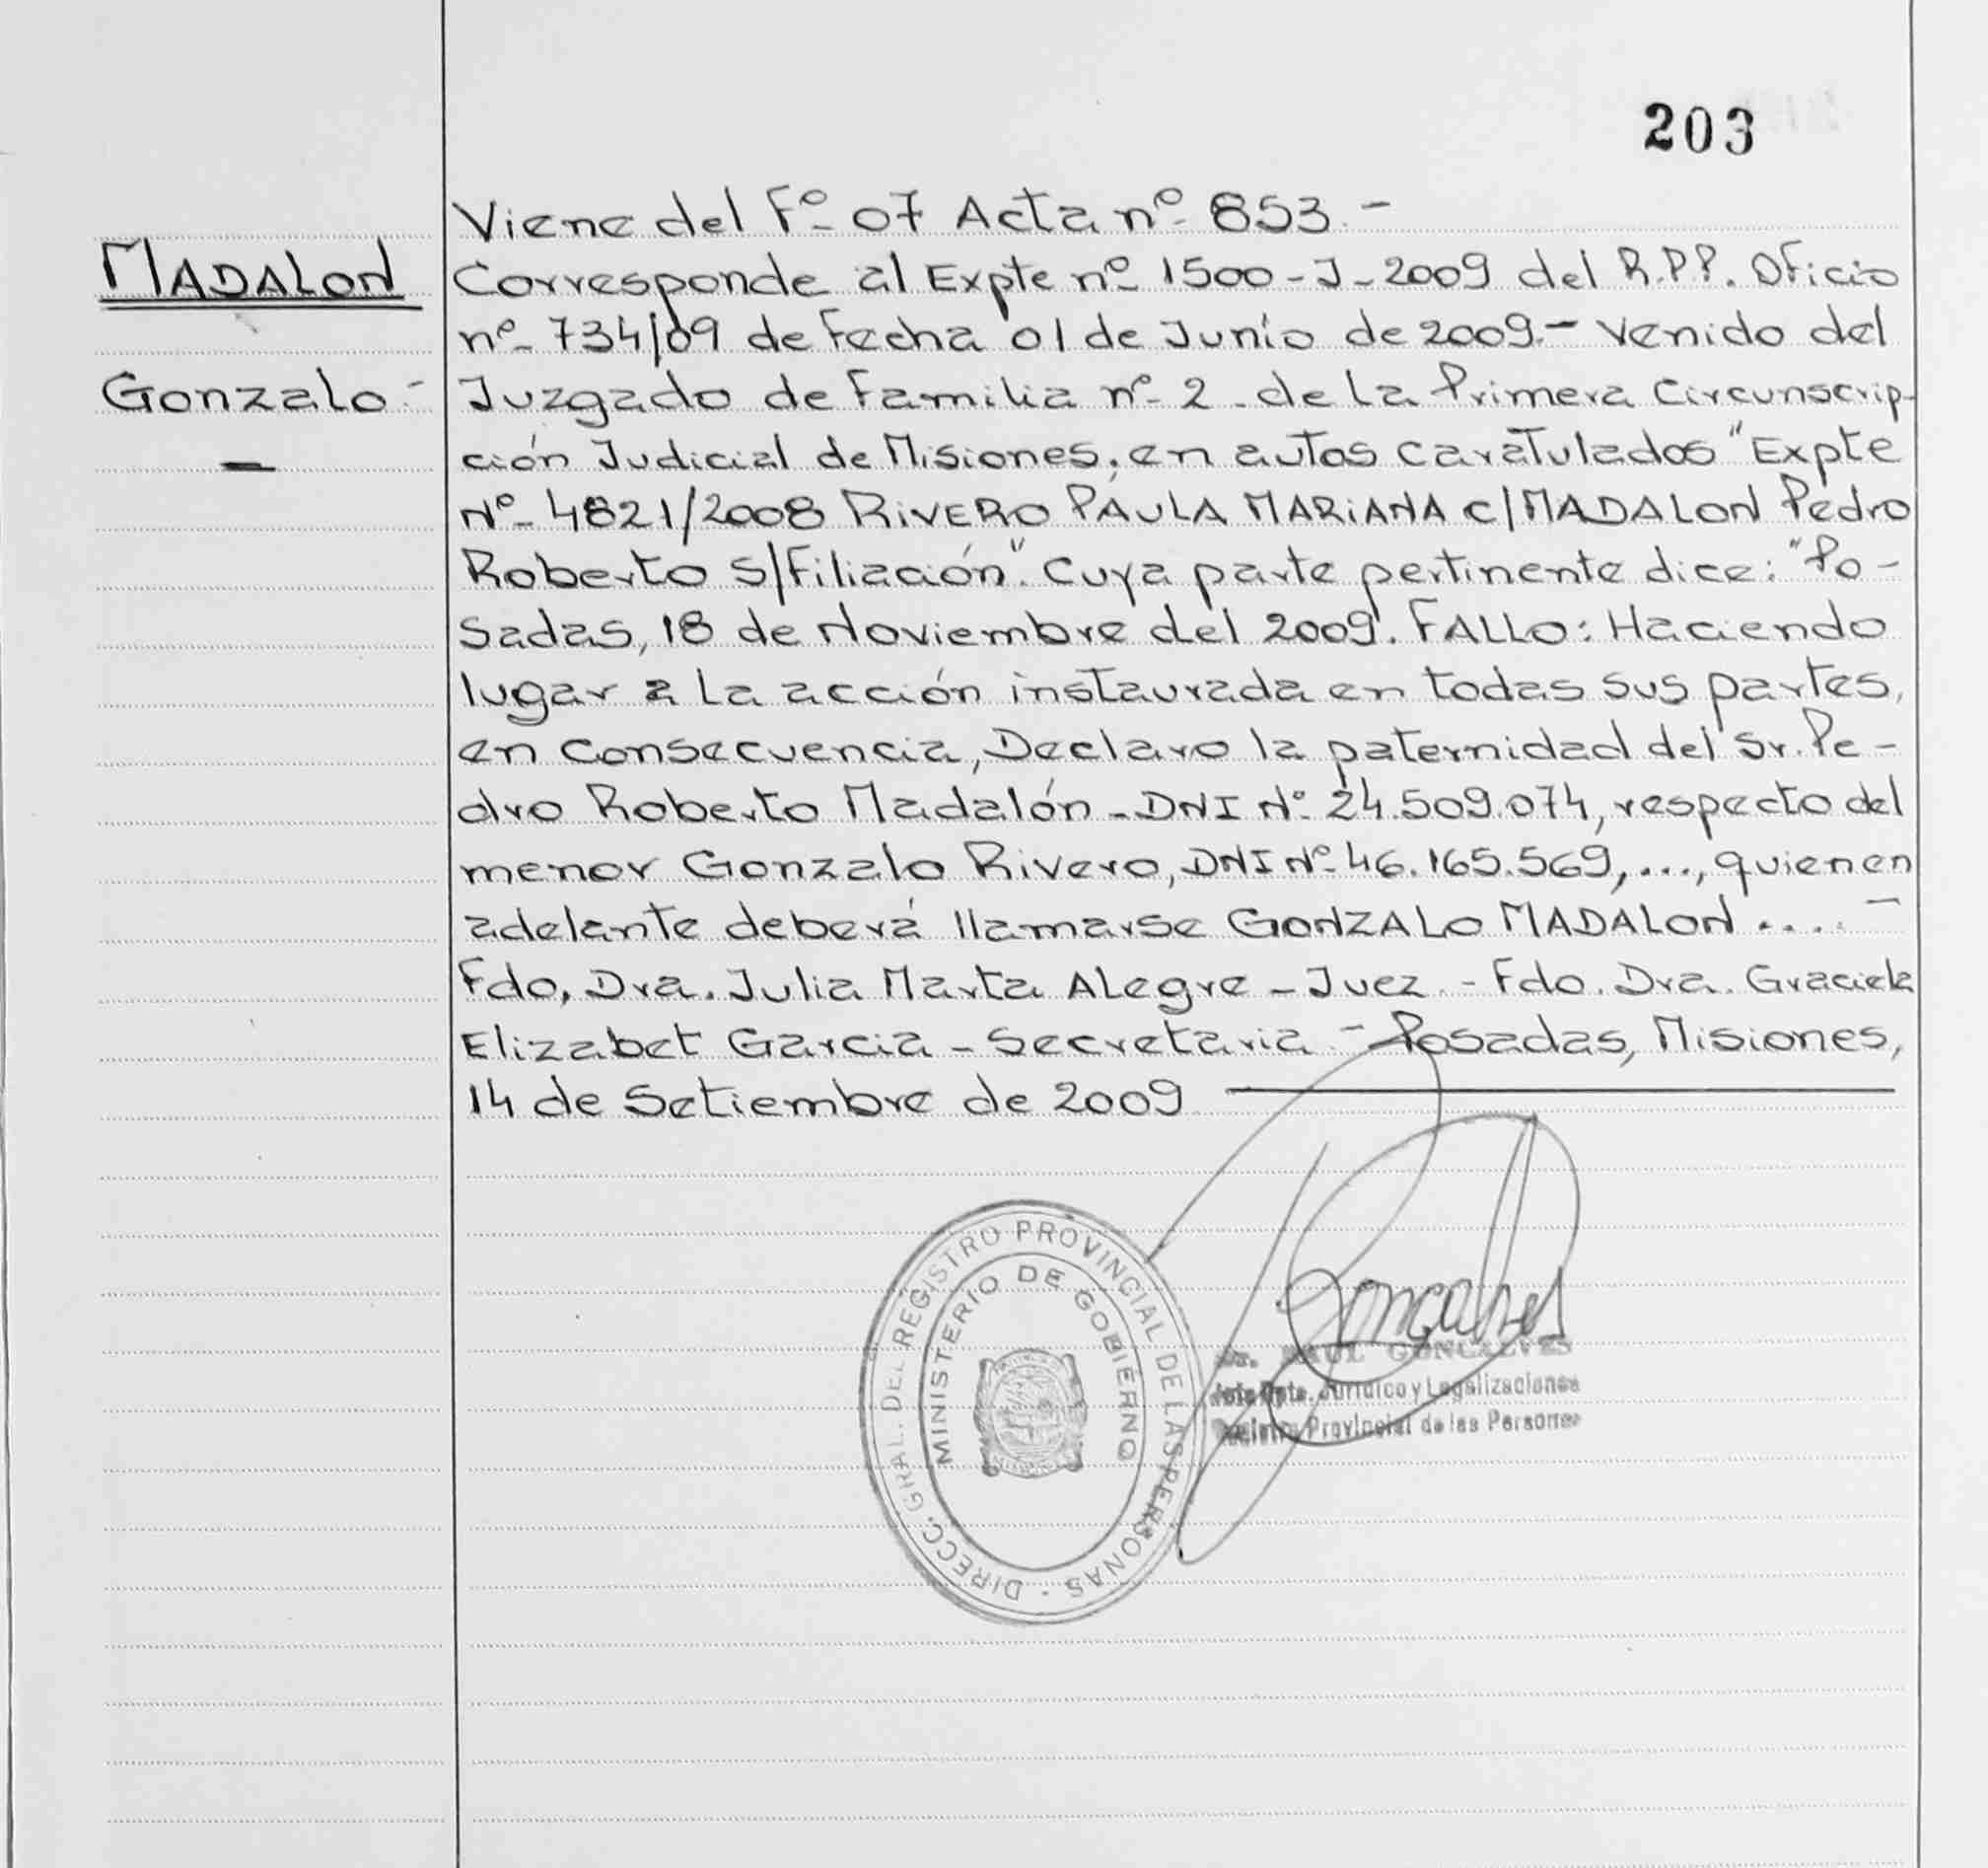 203
Viene del Fº 07 Acta nº 853.-
MADALON
Corresponde al Expte nº 1500-J-2009 del R.P.P. Oficio
nº 734/09 de Fecha 01 de Junio de 2009.- Venido del
Gonzalo.-
Juzgado de Familia nº 2 - de La Primera Circunscrip-
ción Judicial de Misiones, en autos caratulados "Expte
Nº 4821/2008 RIVERO PAULA MARIANA C/MADALON Pedro
Roberto S/Filiación". Cuya parte pertinente dice: "Po-
sadas, 18 de Noviembre del 2009. FALLO: Haciendo
lugar a La acción instaurada en todas sus partes,
en consecuencia, Declaro la paternidad del Sr. Pe-
dro Roberto Madalón - DNI Nº 24.509.074, respecto del
menor Gonzalo Rivero, DNI Nº 46.165.569, ..., quien en
adelante deberá llamarse GONZALO MADALON .... -
Fdo. Dra. Julia Marta Alegre - Juez. - Fdo. Dra. Graciela
Elizabet Garcia - Secretaria - Posadas, Misiones,
14 de Setiembre de 2009
DIRECC. GRAL. DEL REGISTRO PROVINCIAL DE LAS PERSONAS
MINISTERIO DE GOBIERNO
Goncalves
Dr. RAUL GONCALVES
Jefe Dpto. Jurídico y Legalizaciones
Registro Provincial de las Personas